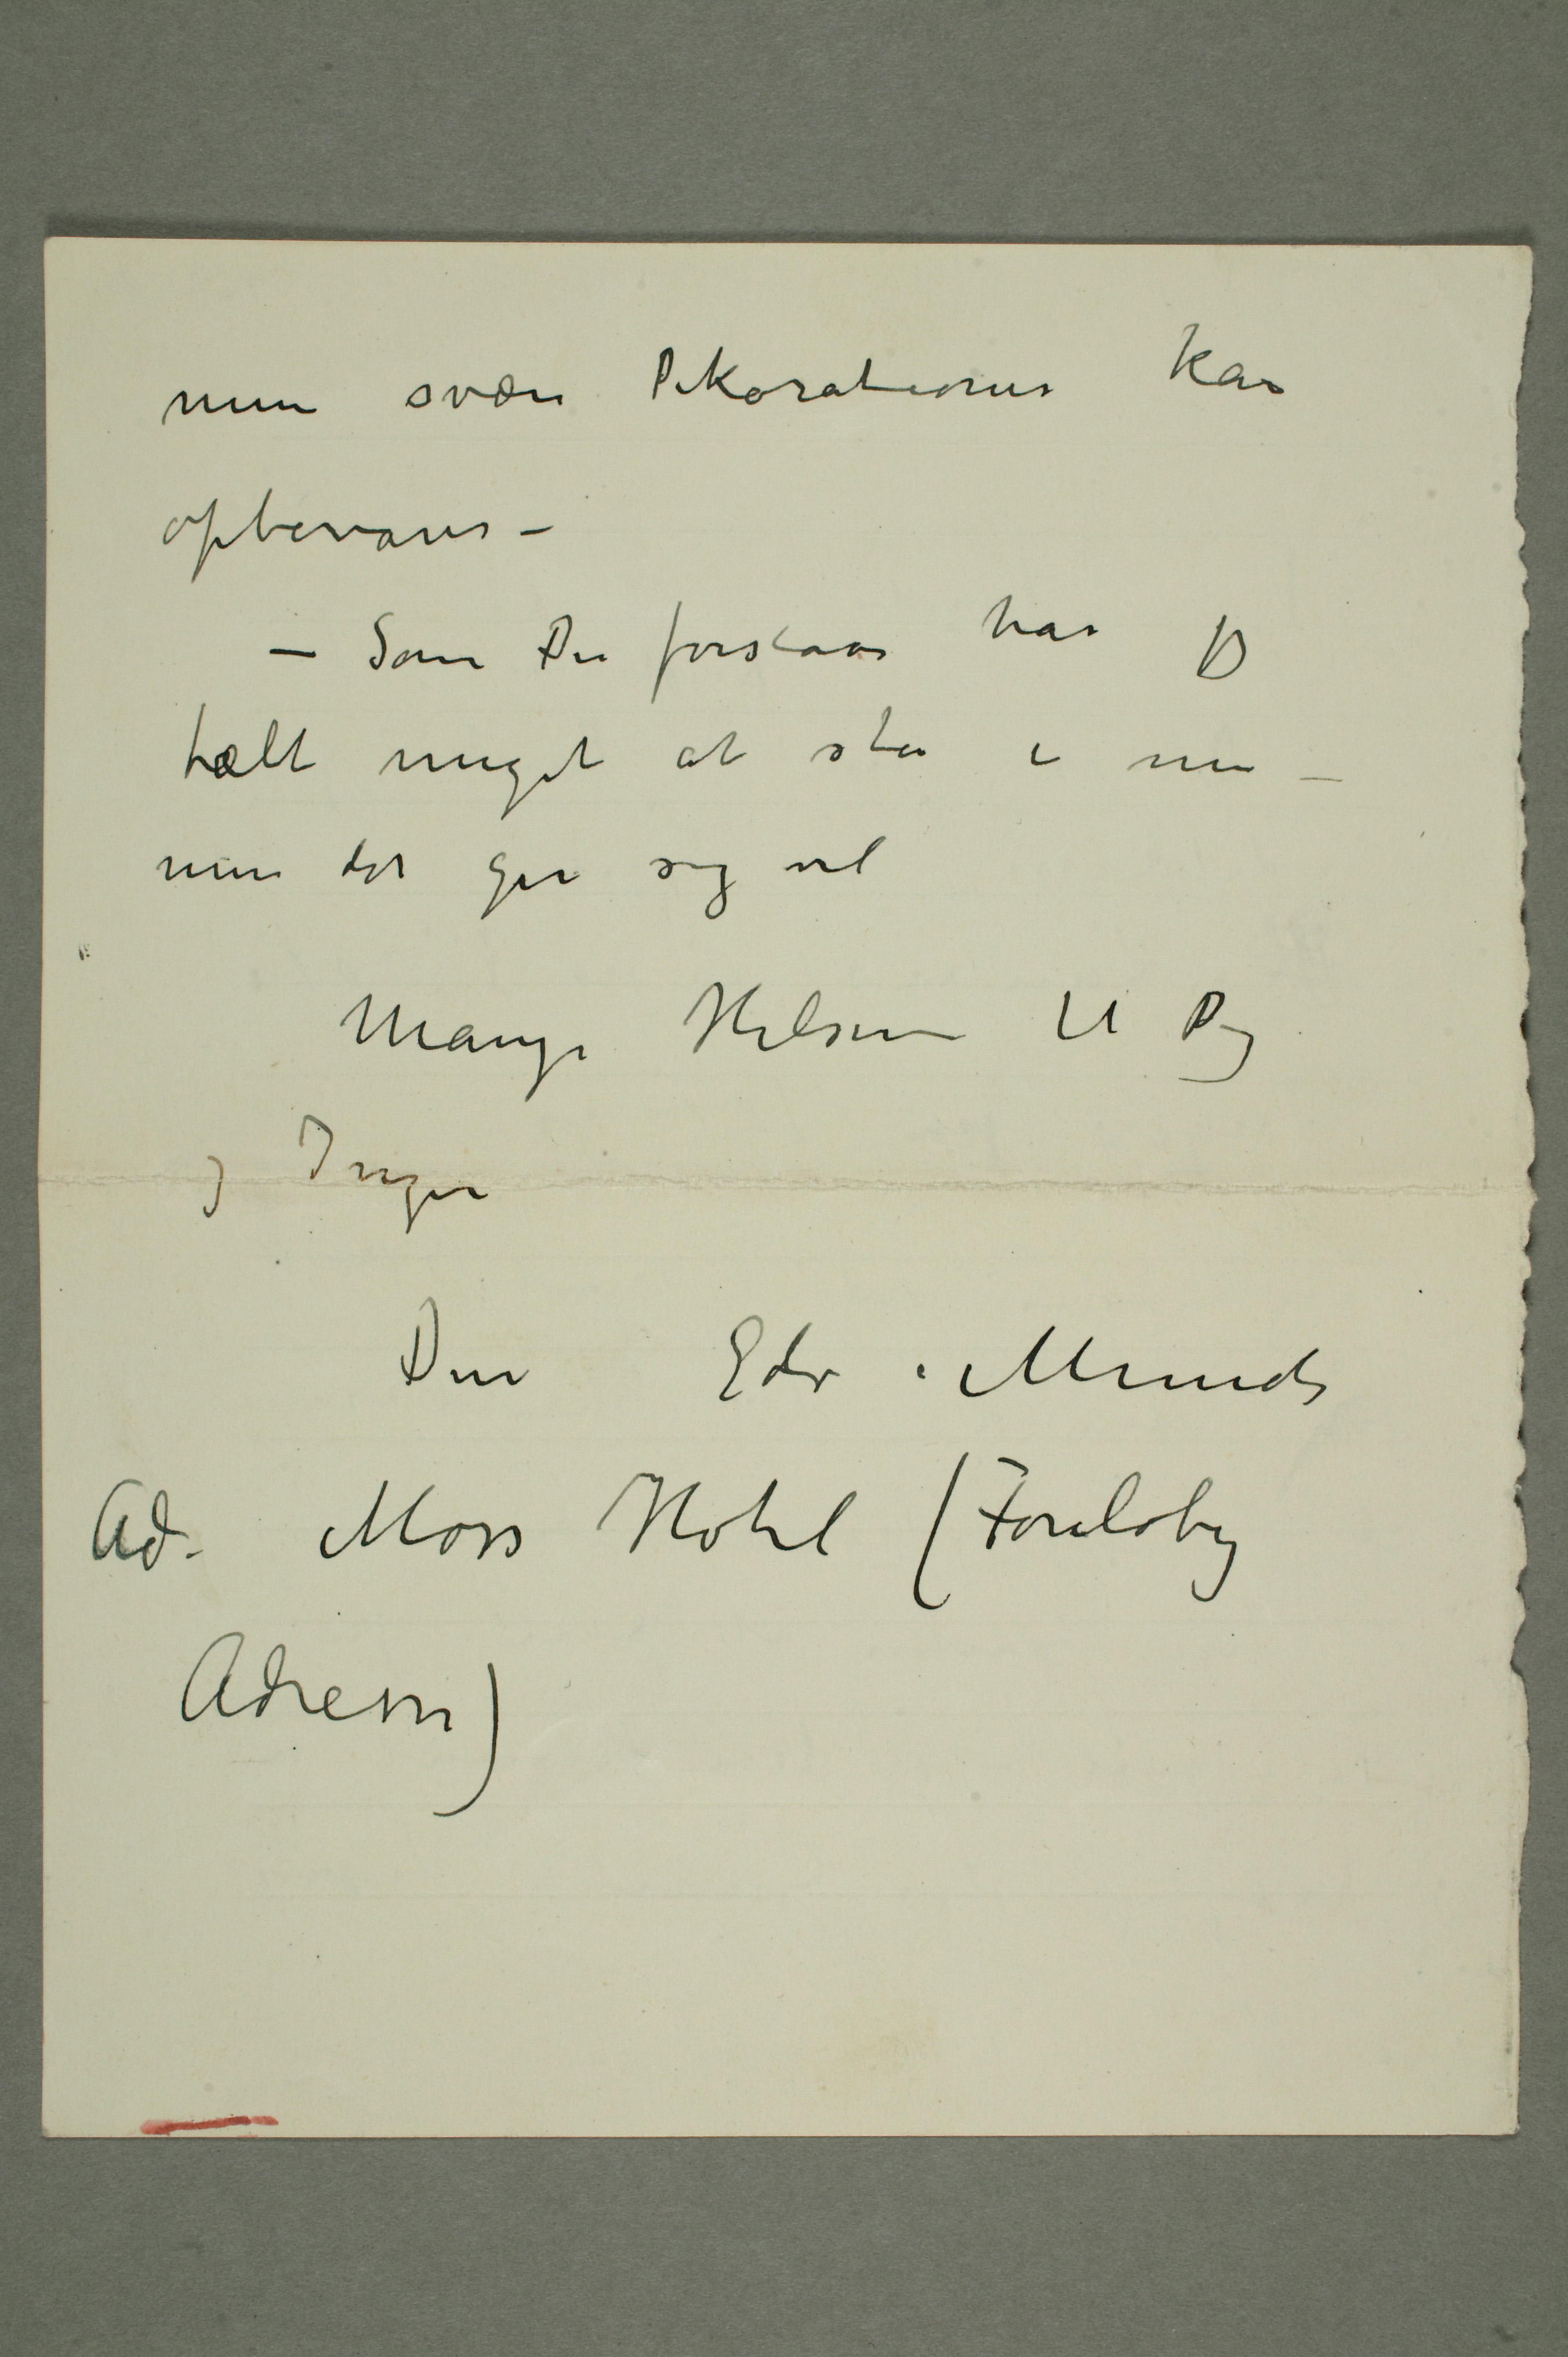 mine svære Dekorationer kan
opbevares –
– Som Du forstaar har jeg
fælt meget at sta i me –
men det ger sig vel
Mange Hilsener til Dig
og Inger
Din Edv. Munch
Ad. Moss Hotel (Foreløbig
Adresse)